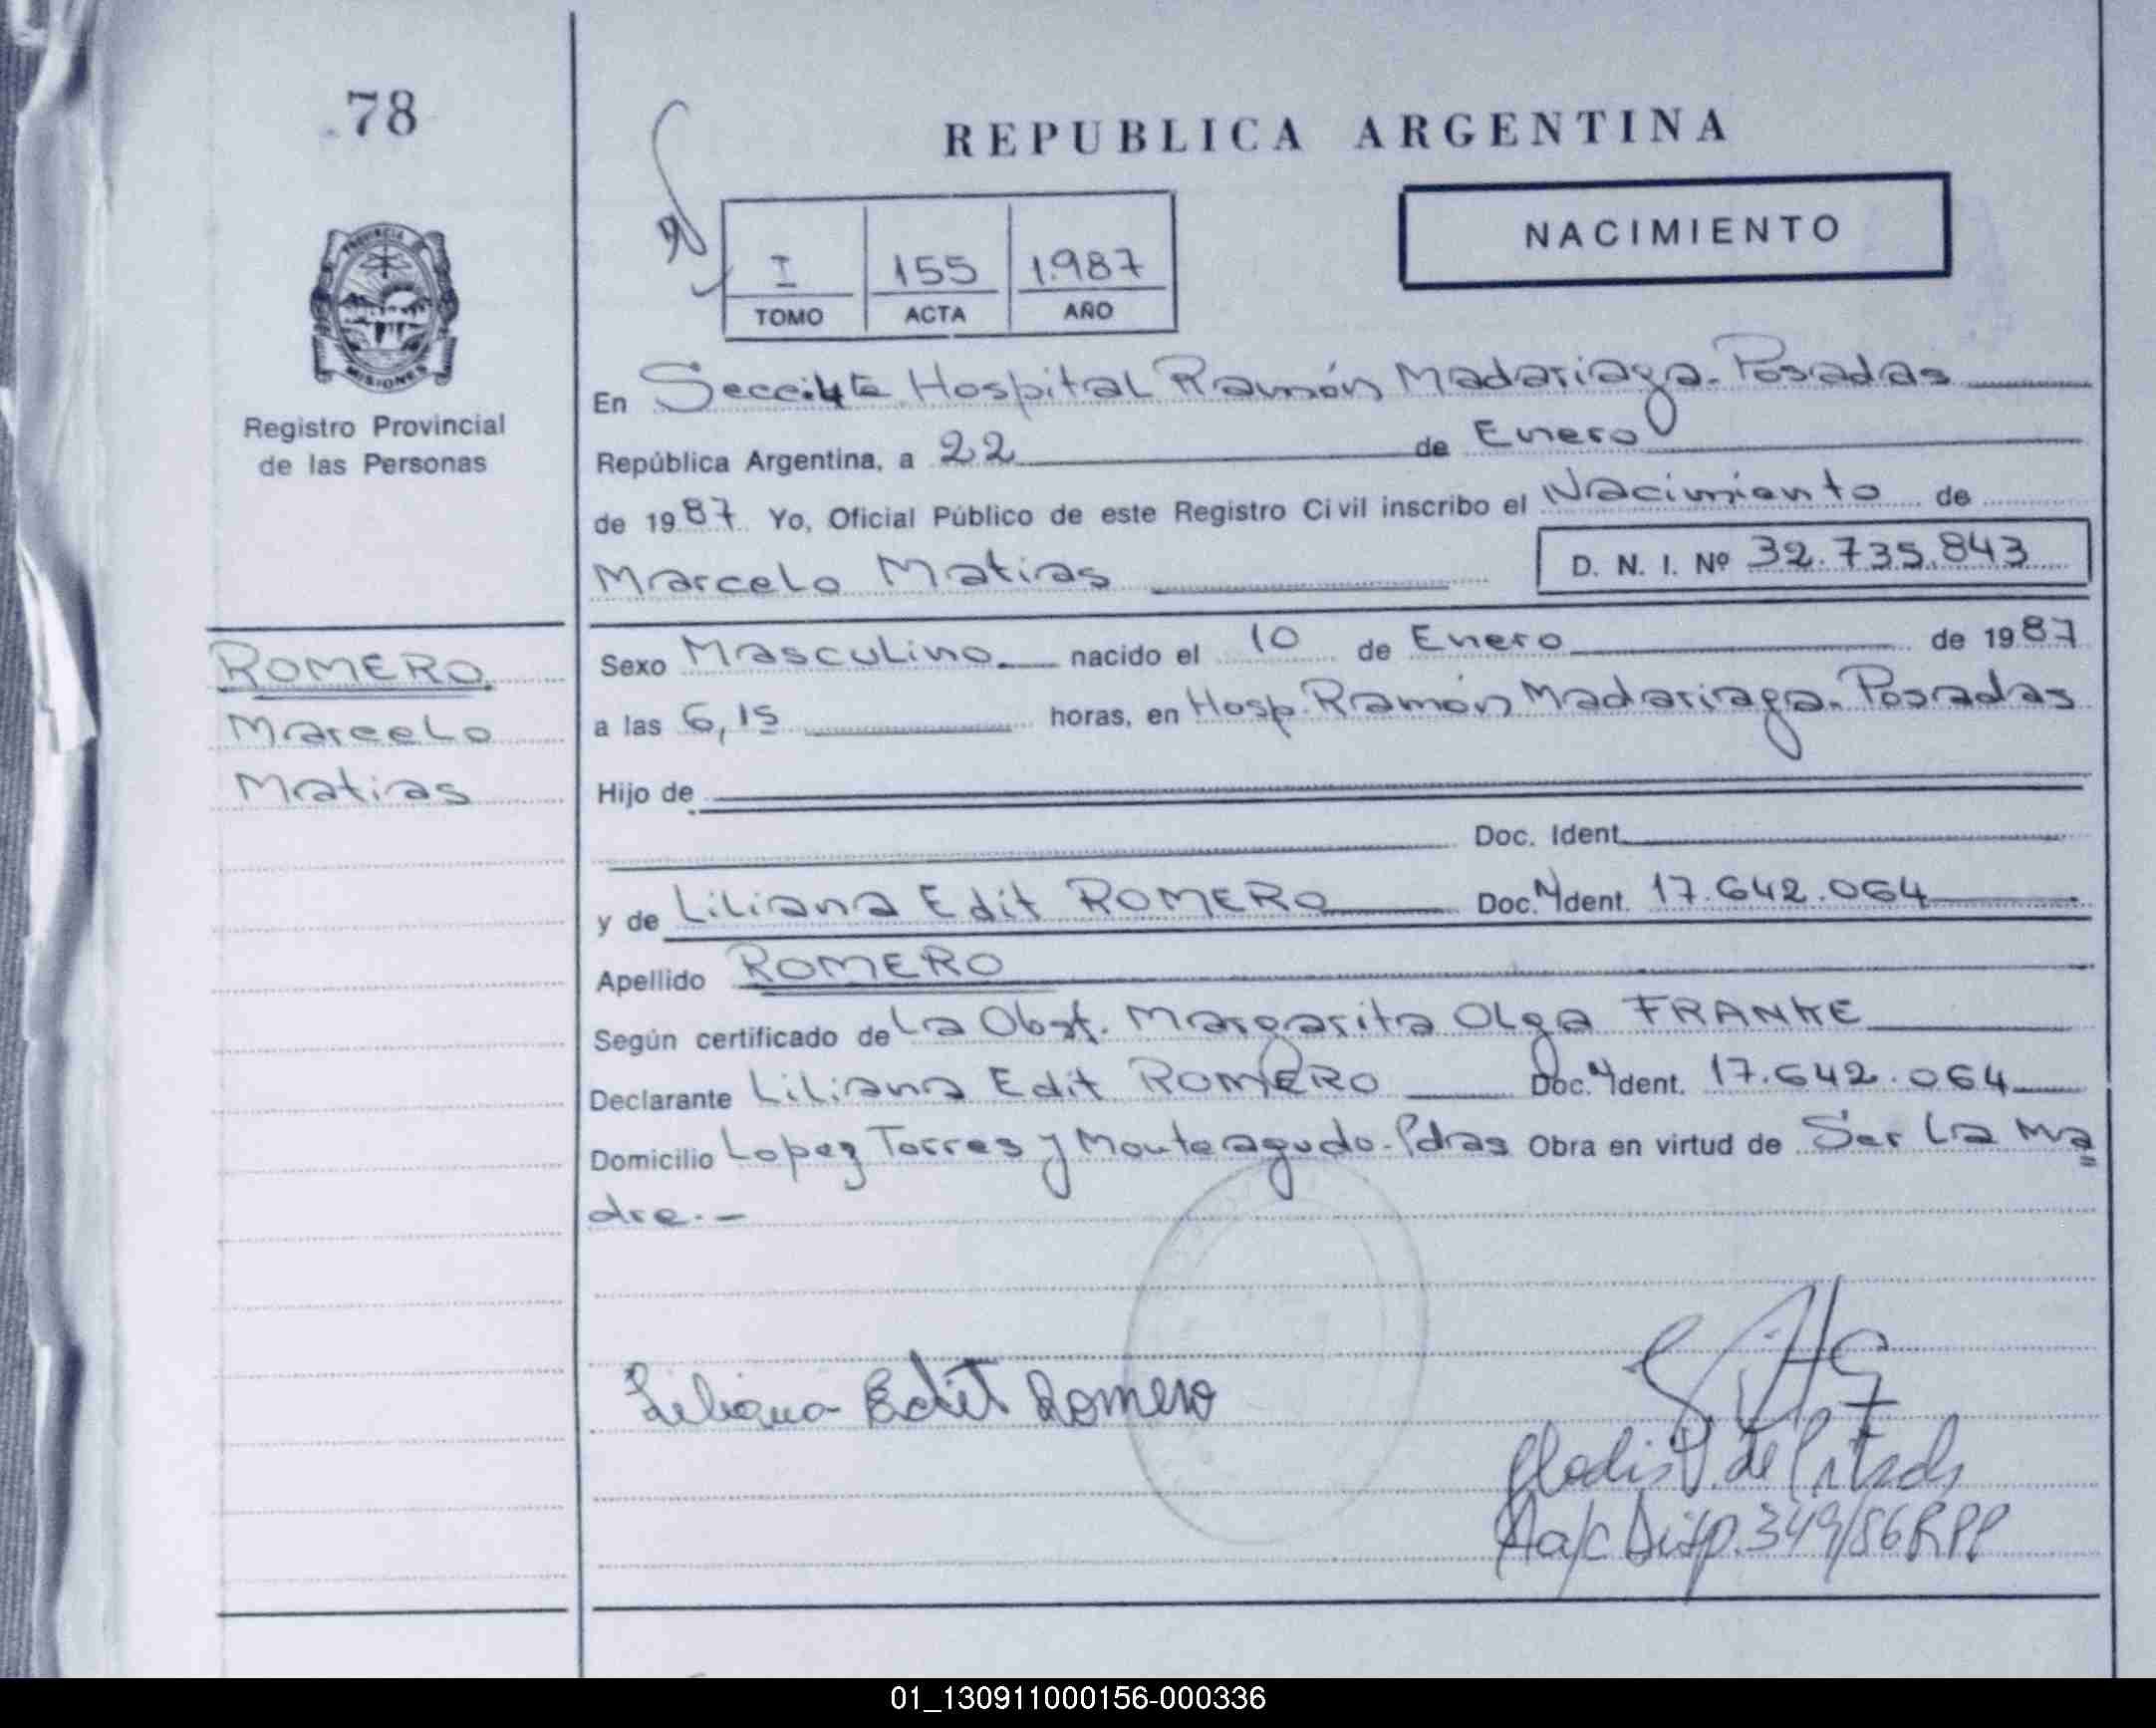 78
REPUBLICA ARGENTINA
NACIMIENTO
I 155 1.987
TOMO ACTA AÑO
PROVINCIA D
MISIONES
Registro Provincial
de las Personas
En Secc. 4ta Hospital Ramón Madariaga-Posadas
República Argentina, a 22 de Enero
de 1987 Yo, Oficial Público de este Registro Civil inscribo el Nacimiento de
Marcelo Matias D. N. I. Nº 32.735.843
ROMERO
Marcelo
Matias
Sexo Masculino nacido el 10 de Enero de 1987
a las 6,15 horas, en Hosp. Ramón Madariaga-Posadas
Hijo de
Doc. Ident.
y de Liliana Edit ROMERO Doc. Ident. 17.642.064
Apellido ROMERO
Según certificado de la Obst. Margarita Olga FRANKE
Declarante Liliana Edit ROMERO Doc. Ident. 17.642.064
Domicilio Lopez Torres y Monteagudo-Pdas Obra en virtud de Ser la Ma
dre.-
Liliana Edit Romero
de
A a/c Disp. 349/86 RPP
01_130911000156-000336